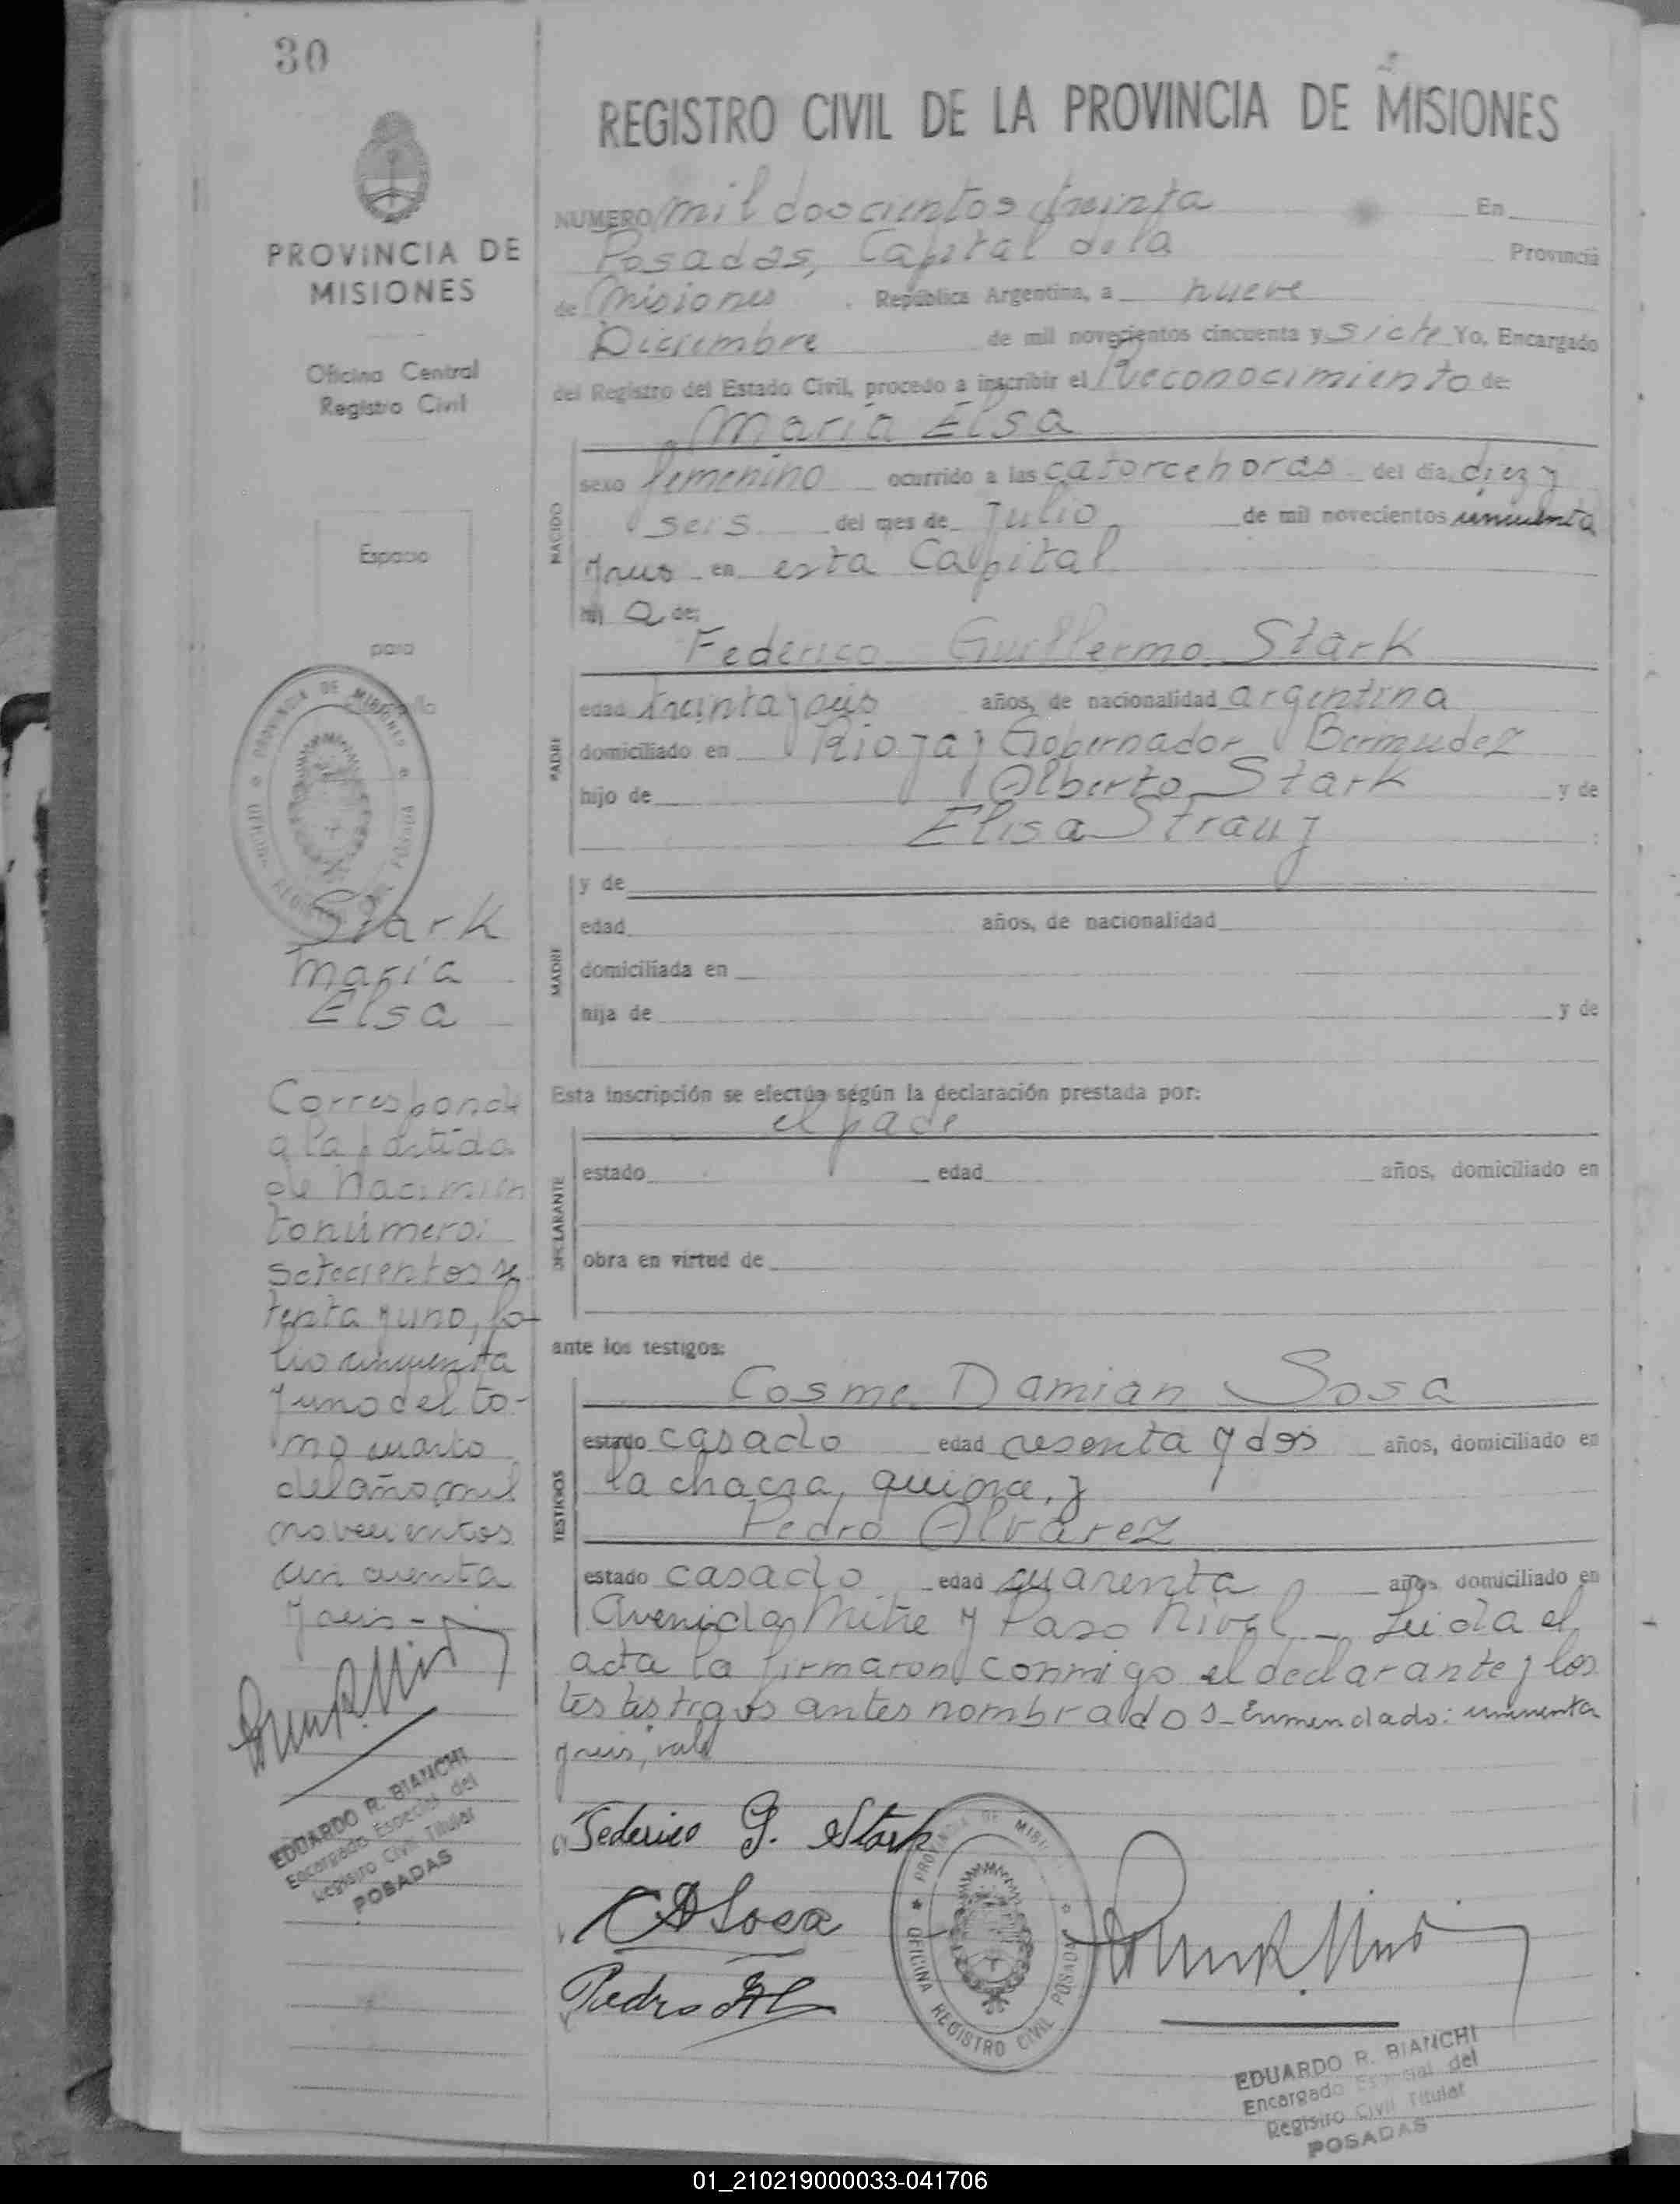 30
PROVINCIA DE
MISIONES
Oficina Central
Registro Civil
Espacio
para
Stark
María
Elsa
Corresponde
a la partida
de Nacimien
to número:
setecientos se
tenta y uno, fo-
lio cincuenta
y uno del to-
mo cuarto
del año mil
novecientos
cincuenta
y seis -
EDUARDO R. BIANCHI
Encargado Especial del
Registro Civil Titular
POSADAS
REGISTRO CIVIL DE LA PROVINCIA DE MISIONES
NUMERO mil doscientos treinta En
Posadas, Capital de la Provincia
de Misiones . República Argentina, a nueve
Diciembre de mil novecientos cincuenta y siete Yo, Encargado
del Registro del Estado Civil, procedo a inscribir el Reconocimiento de:
María Elsa
NACIDO
sexo femenino ocurrido a las catorce horas del día diez y
seis del mes de Julio de mil novecientos cincuenta
y seis en esta Capital
hij a de:
Federico Guillermo Stark
PADRE
edad treinta y seis años, de nacionalidad argentina
domiciliado en Rioja y Gobernador Bermudez
hijo de Alberto Stark y de
Elisa Strauz
MADRE
y de
edad años, de nacionalidad
domiciliada en
hija de y de
Esta inscripción se efectúa según la declaración prestada por:
el pade
DECLARANTE
estado edad años, domiciliado en
obra en virtud de
ante los testigos:
Cosme Damian Sosa
TESTIGOS
estado casado edad cesenta y dos años, domiciliado en
la chacra quince, y
Pedro Alvarez
estado casado edad cuarenta años domiciliado en
Avenida Mitre y Paso Nivel - Leida el
acta la firmaron conmigo el declarante y los
tes testigos antes nombrados - Enmendado: cincuenta
y seis, vale
Federico G. Stark
CDSosa
Pedro
PROVINCIA DE MISI
OFICINA REGISTRO CIVIL POSADAS
EDUARDO R. BIANCHI
Encargado Especial del
Registro Civil Titular
POSADAS
01_210219000033-041706